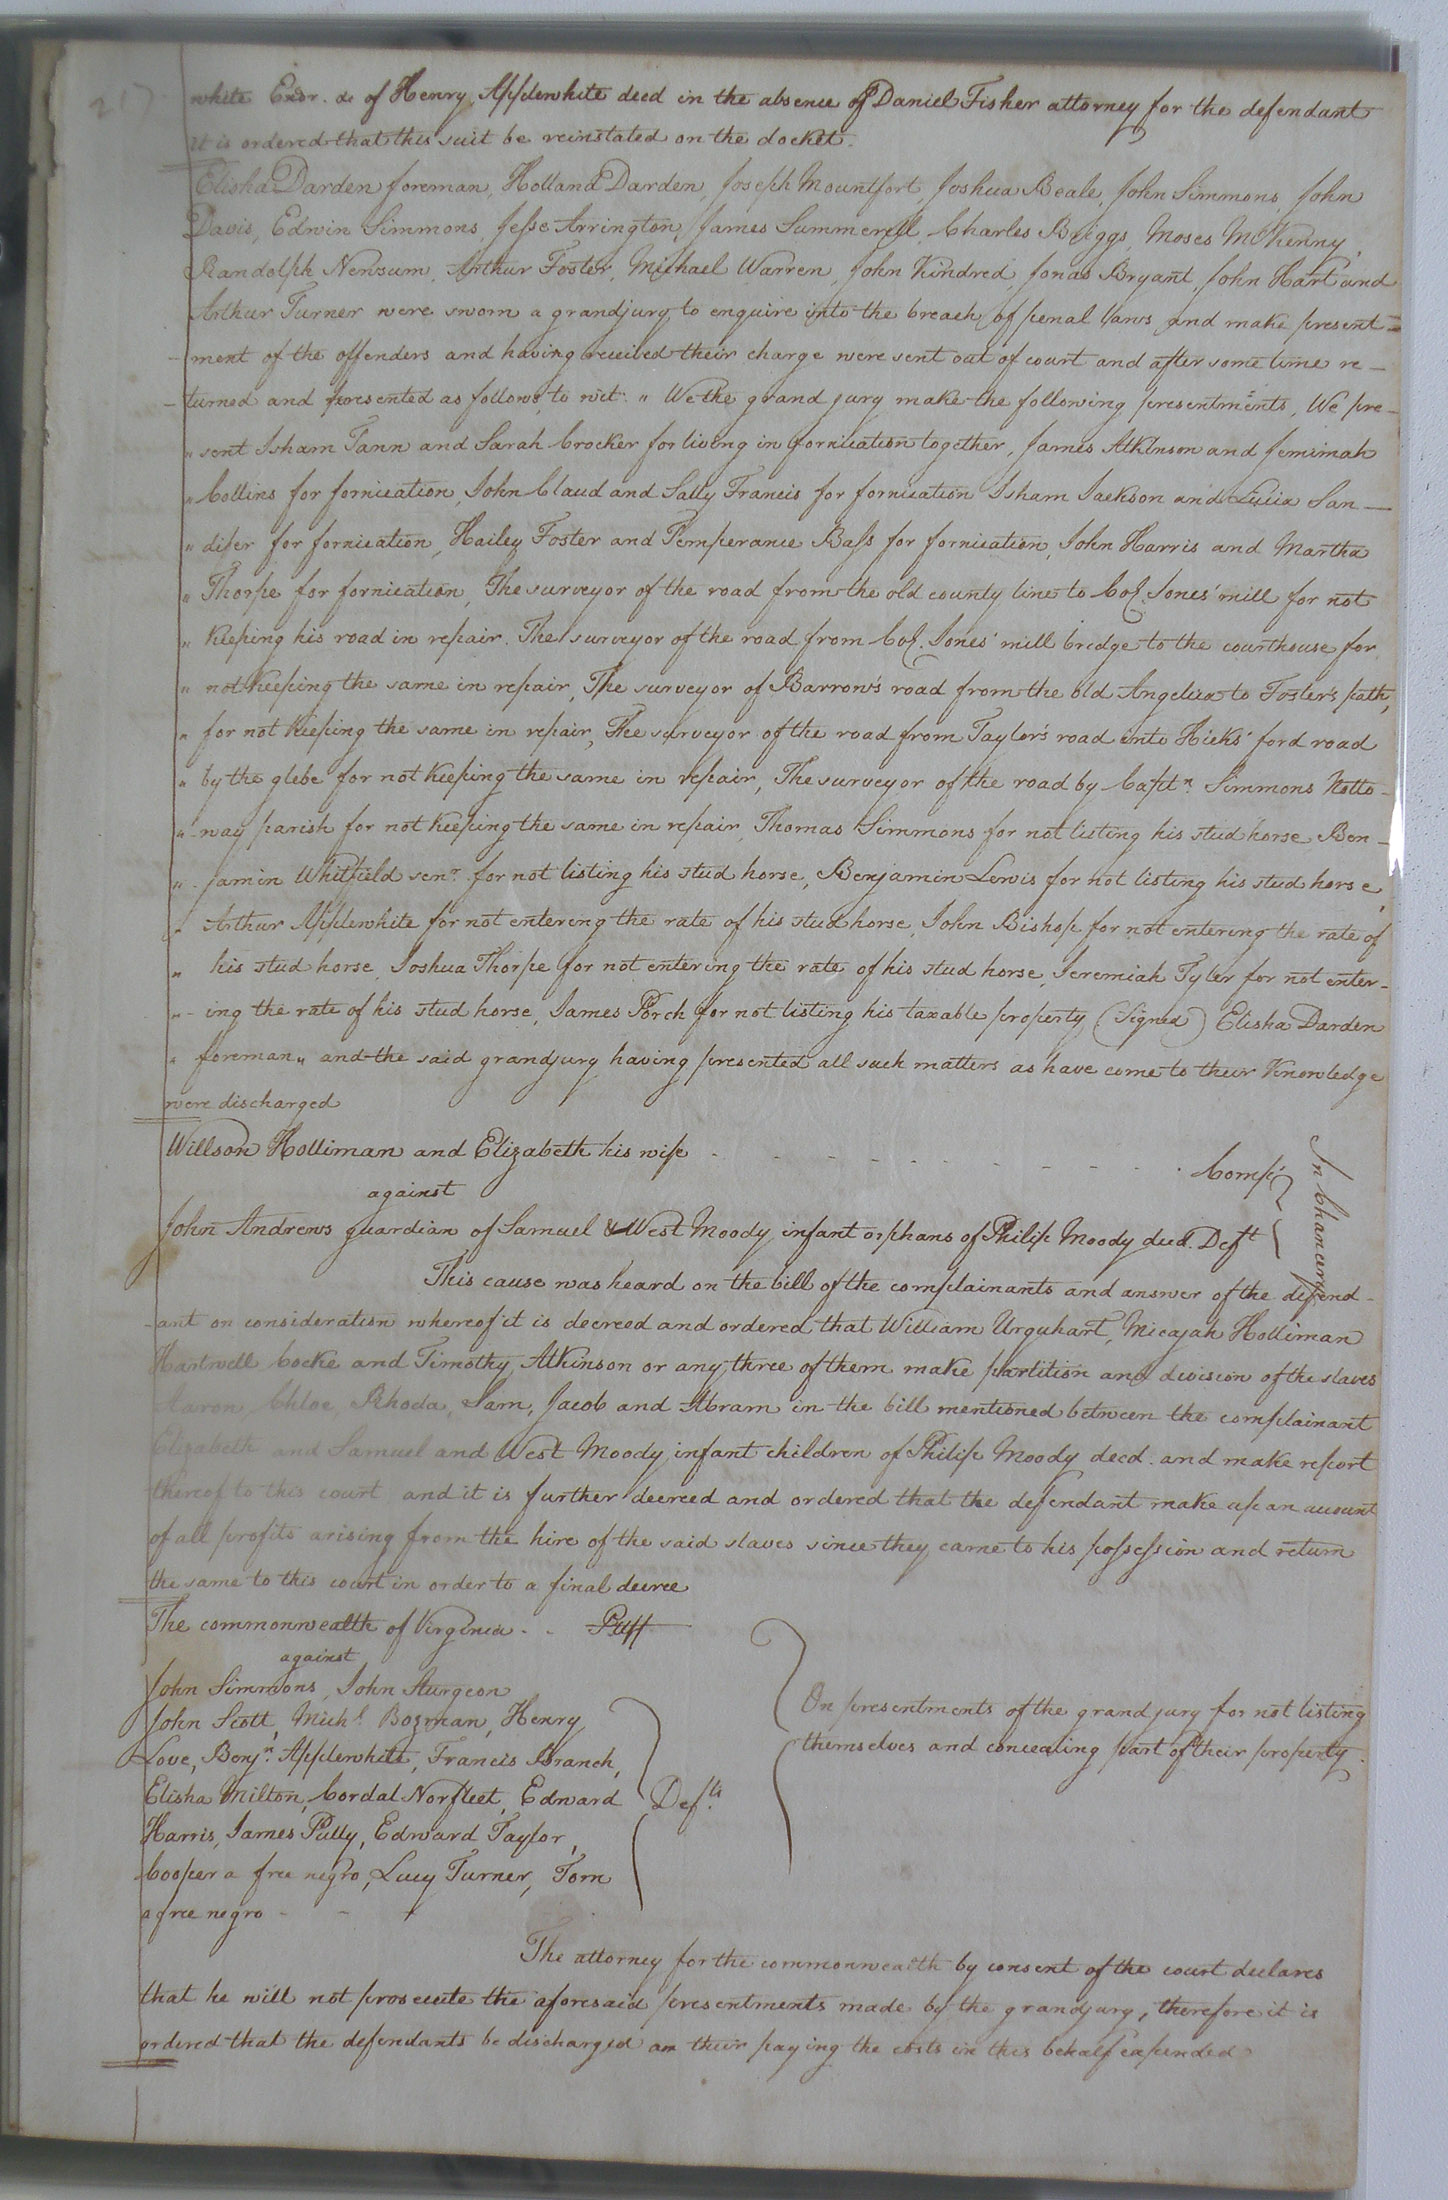 white Exor. &c of Henry Applewhite decd in the absence of Daniel Fisher attorney for the defendant
it is ordered that this suit be reinstated on the docket.
Elisha Darden foreman, Holland Darden, Joseph Mountfort, Joshua Beale, John Simmons, John
Davis, Edwin Simmons, Jesse Arrington, James Summerell, Charles Briggs, Moses McKenny,
Randolph Newsum, Arthur Foster, Michael Warren, John Kindred, Jonas Bryant, John Hart and
Arthur Turner were sworn a grandjury to enquire into the breach of penal laws and make present=
-ment of the offenders and having received their charge were sent out of court and after some time re-
-turned and presented as follows, to wit. " We the grand jury make the following presentments, We pre-
" sent Isham Tann and Sarah Crocker for living in fornication together, James Atkinson and Jemimah
" Collins for fornication, John Claud and Sally Francis for fornication Isham Jackson and Lucia San-
" difer for fornication, Hailey Foster and Temperance Bass for fornication, John Harris and Martha
" Thorpe for fornication, The surveyor of the road from the old county line to Col. Jones' mill for not
" keeping his road in repair. The surveyor of the road from Col. Jones' mill bridge to the courthouse for
" not keeping the same in repair, The surveyor of Barrow's road from the old Angelica to Foster's path,
" for not keeping the same in repair, The surveyor of the road from Taylor's road into Hicks' ford road
" by the glebe for not keeping the same in repair, The surveyor of the road by Captn. Simmons Notto-
" -way parish for not keeping the same in repair, Thomas Simmons for not listing his stud horse Ben-
" -jamin Whitfield senr. for not listing his stud horse, Benjamin Lewis for not listing his stud horse,
" Arthur Applewhite for not entering the rate of his stud horse, John Bishop for not entering the rate of
" his stud horse, Joshua Thorpe for not entering the rate of his stud horse, Jeremiah Tyler for not enter-
" -ing the rate of his stud horse, James Porch for not listing his taxable property (Signed) Elisha Darden
" foreman " and the said grandjury having presented all such matters as have come to their Knowledge
were discharged
Willson Holliman and Elizabeth his wife - - - - - - - - - - Compts
against
In Chancery
John Andrews guardian of Samuel & West Moody infant orphans of Philip Moody decd. Deft
This cause was heard on the bill of the complainants and answer of the defend-
-ant on consideration whereof it is decreed and ordered that William Urquhart, Micajah Holliman
Hartwell Cocke and Timothy Atkinson or any three of them make partition and division of the slaves
Aaron, Chloe, Rhoda, Sam, Jacob and Abram in the bill mentioned between the complainant
Elizabeth and Samuel and West Moody infant children of Philip Moody decd. and make report
thereof to this court and it is further decreed and ordered that the defendant make up an account
of all profits arising from the hire of the said slaves since they came to his possession and return
the same to this court in order to a final decree
The commonwealth of Virginia - - Pltff
against
John Simmons, John Sturgeon
John Scott, Michl. Bozman, Henry
Love, Benjn. Applewhite, Francis Branch,
Elisha Milton, Cordal Norfleet, Edward
Harris, James Pully, Edward Taylor,
Cooper a free negro, Lucy Turner, Tom
a free negro - - -
Defts.
On presentments of the grandjury for not listing
themselves and concealing part of their property.
The attorney for the commonwealth by consent of the court declares
that he will not prosecute the aforesaid presentments made by the grandjury, therefore it is
ordered that the defendants be discharged on their paying the costs in this behalf expended